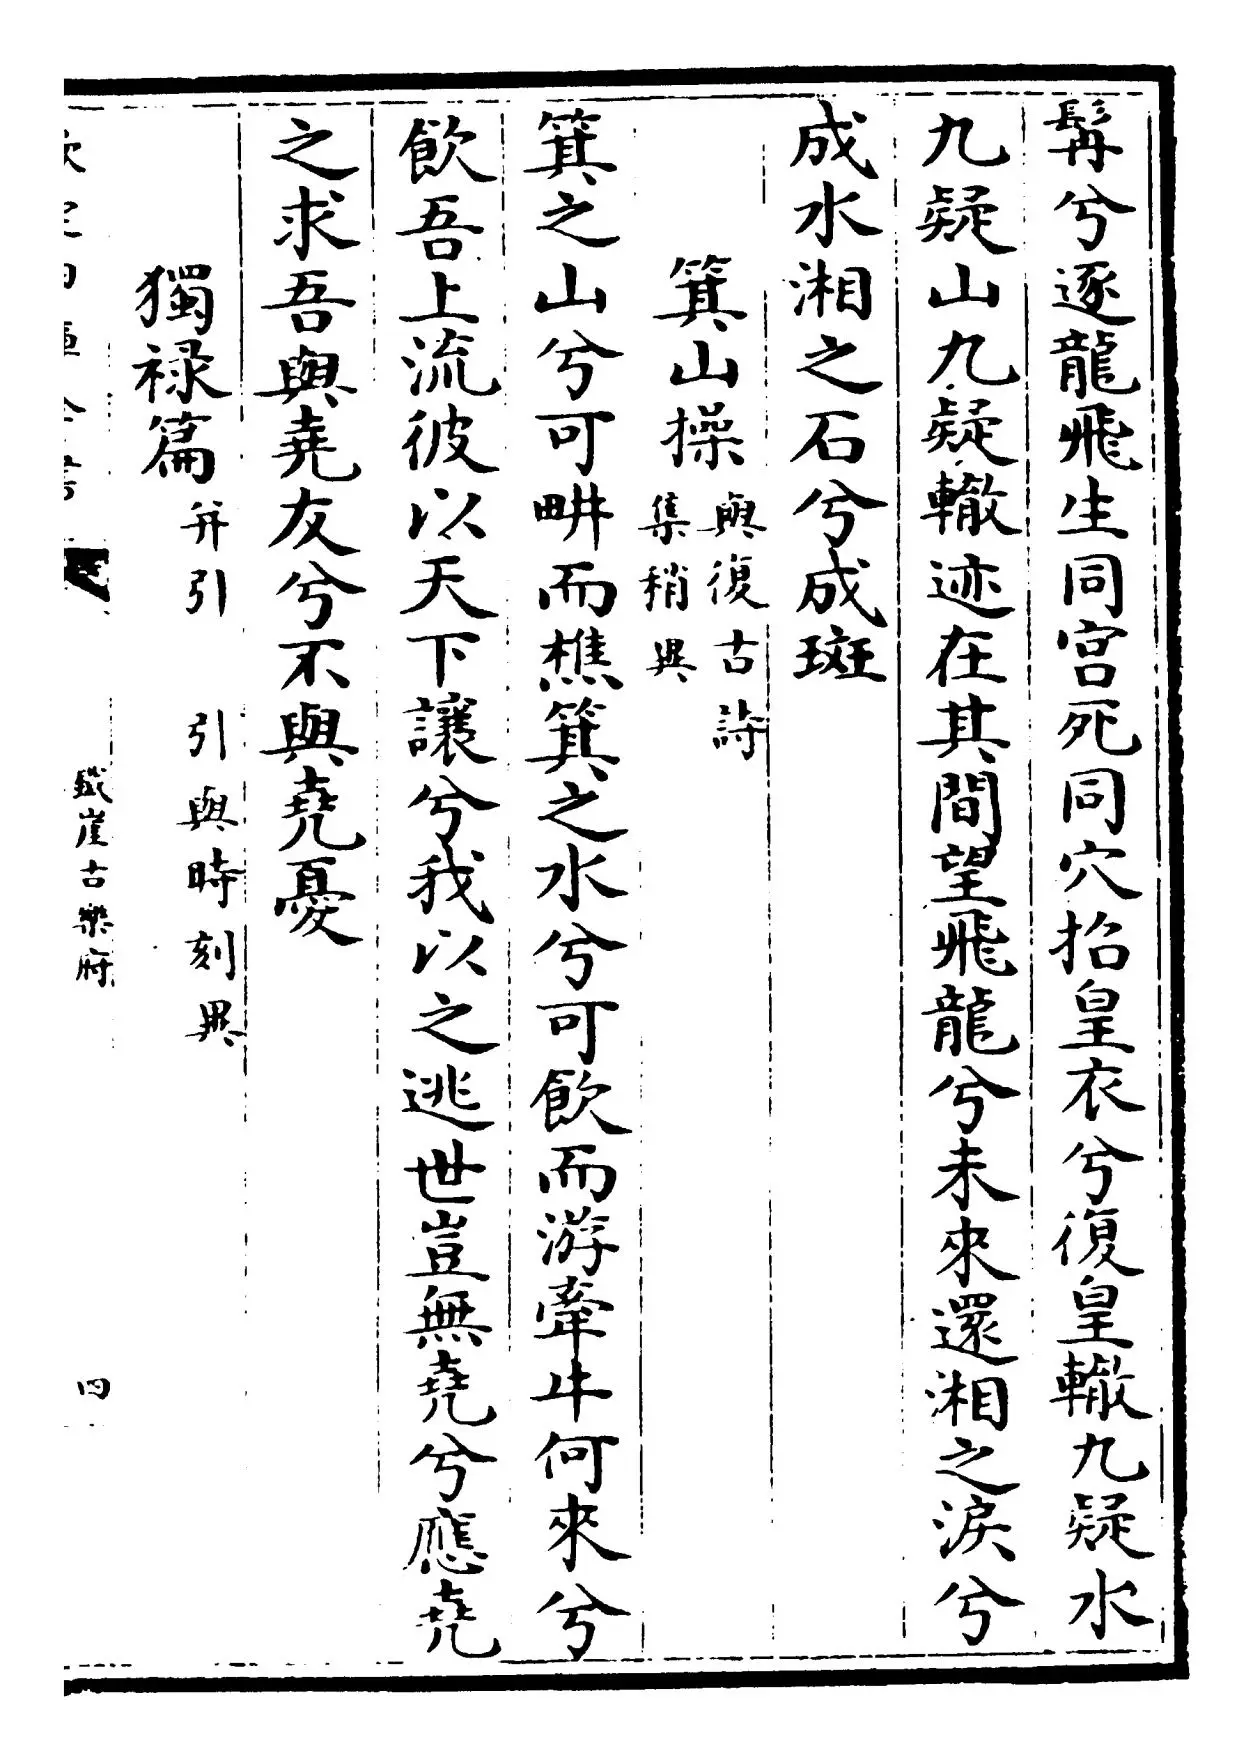 髯兮逐龍飛生同宫死同穴招皇衣兮復皇轍九疑水
九疑山九疑轍迹在其間望飛龍兮未來還湘之淚兮
成水湘之石兮成斑
箕山操
與復古詩
集稍異
箕之山兮可畊而樵箕之水兮可飲而游牽牛何來兮
飲吾上流彼以天下讓兮我以之逃世豈無堯兮應堯
之求吾與堯友兮不與堯憂
獨禄篇
并引 引與時刻異
鐵崖古樂府
四